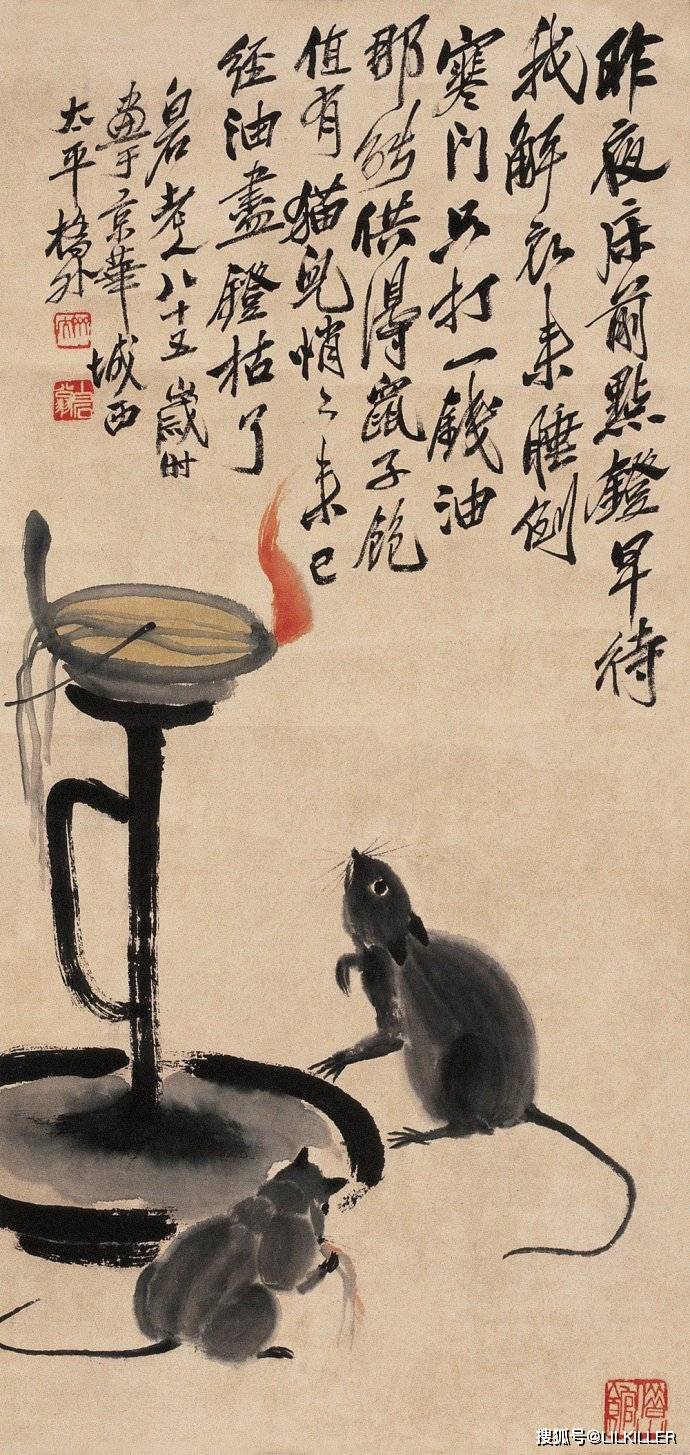 昨夜床前點鐙早待
我解衣來睡倒
寒门只打一錢油
那能供得鼠子飽
值有猫兒悄〻来已
經油盡鐙枯了
白石老人八十五歲时
畫于京華城西
太平橋外
搜狐号@LILKILLER